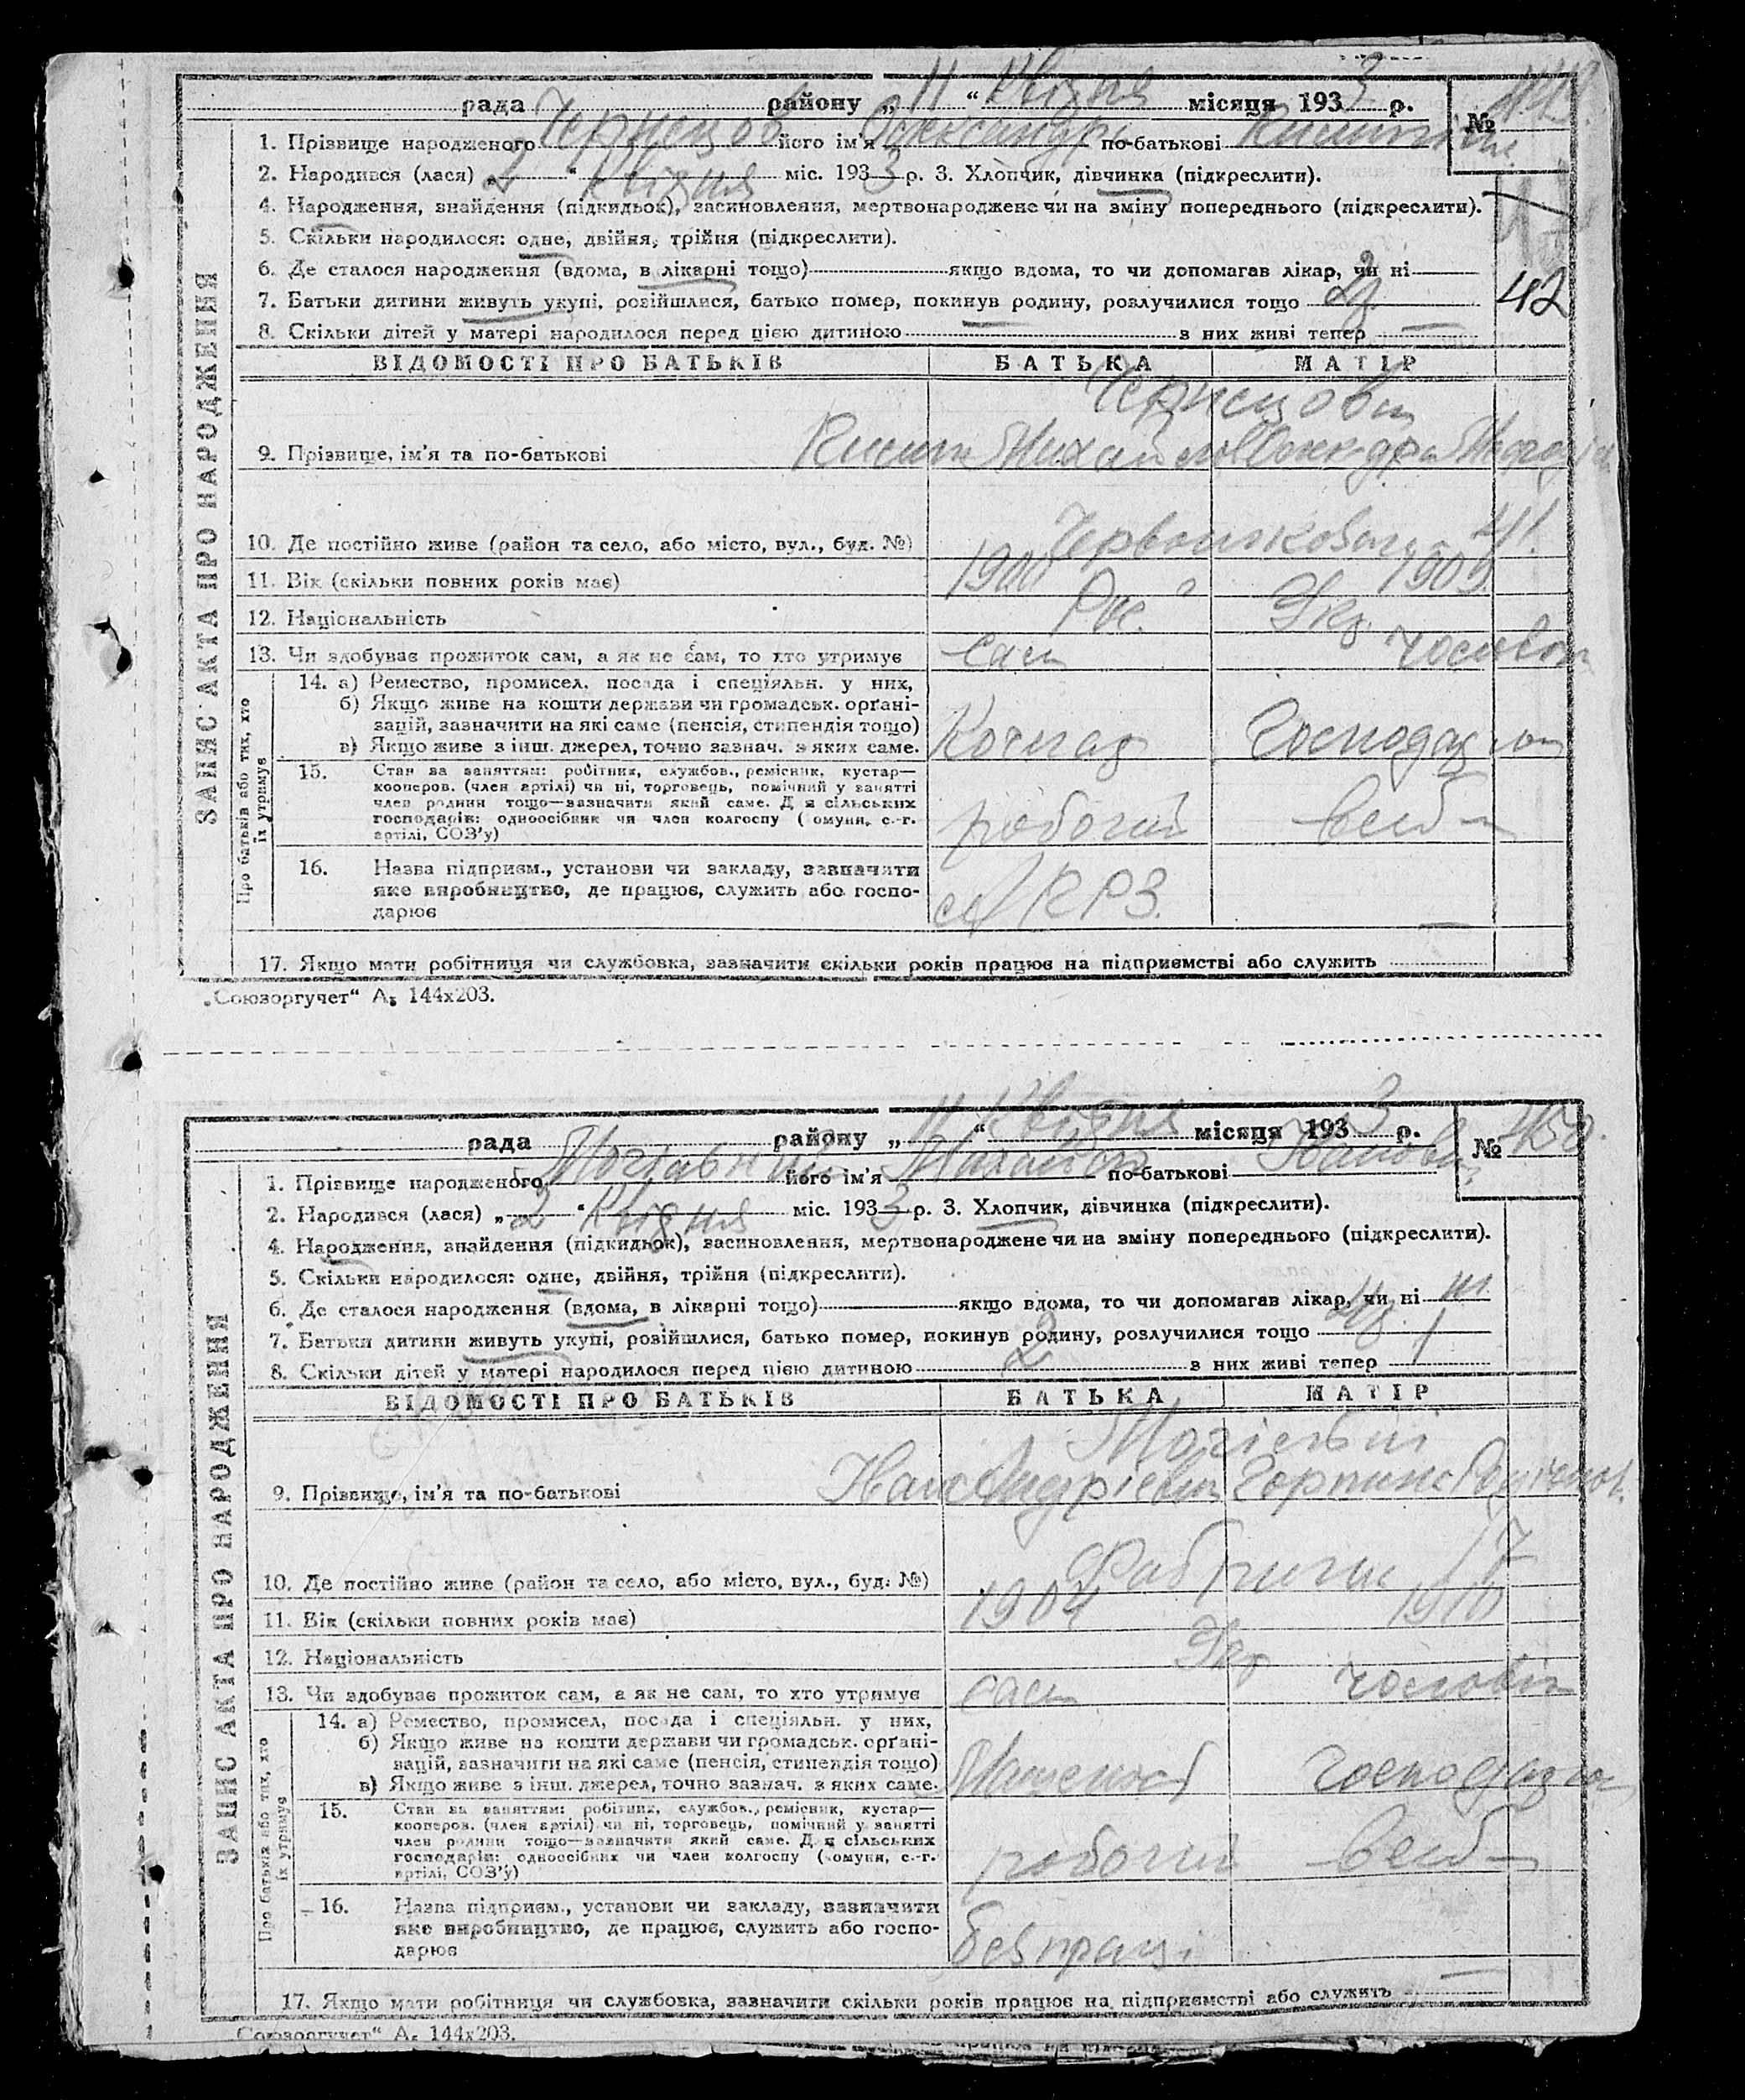 рада району „ 11 “ Квітня місяця 1933 р.
№
1. Прізвище народженого його ім'я по-батькові
2. Народився (лася) „ 2 “ Квітня міс. 1933 р. 3. Хлопчик, дівчинка (підкреслити).
4. Народження, знайдення (підкидьок), засиновлення, мертвонароджене чи на зміну попереднього (підкреслити).
5. Скільки народилося: одне, двійня, трійня (підкреслити).
6. Де сталося народження (вдома, в лікарні тощо) якщо вдома, то чи допомагав лікар, чи ні
7. Батьки дитини живуть укупі, розійшлися, батько помер, покинув родину, розлучилися тощо
42
8. Скільки дітей у матері народилося перед цією дитиною — з них живі тепер —
ЗАПИС АКТА ПРО НАРОДЖЕННЯ
ВІДОМОСТІ ПРО БАТЬКІВ БАТЬКА МАТІР
9. Прізвище, ім'я та по-батькові
10. Де постійно живе (район та село, або місто, вул., буд. №) 41.
11. Вік (скільки повних років має) 1900 1909
12. Національність Рос. Укр.
13. Чи здобуває прожиток сам, а як не сам, то хто утримує сам чоловік
Про батьків або тих, хто їх утримує
14. а) Ремество, промисел, посада і спеціяльн. у них,
б) Якщо живе на кошти держави чи громадськ. орґані-
зацій, зазначити на які саме (пенсія, стипендія тощо)
в) Якщо живе з інш. джерел, точно зазнач. з яких саме.
15. Стан за заняттям: робітник, службов., ремісник, кустар—
кооперов. (член артілі) чи ні, торговець, помічний у занятті
член родини тощо—зазначити який саме. Для сільських
господарів: одноосібник чи член колгоспу (комуни, с.-г.
артілі, СОЗ'у) робочий
16. Назва підприєм., установи чи закладу, зазначити
яке виробництво, де працює, служить або госпо-
дарює КРЗ.
17. Якщо мати робітниця чи службовка, зазначити скільки років працює на підприємстві або служить
„Союзоргучет“ А₅ 144х203.
рада району „ 11 “ Квітня місяця 1933 р.
№ 450.
1. Прізвище народженого його ім'я Михайло по-батькові
2. Народився (лася) „ 2 “ Квітня міс. 1933 р. 3. Хлопчик, дівчинка (підкреслити).
4. Народження, знайдення (підкидьок), засиновлення, мертвонароджене чи на зміну попереднього (підкреслити).
5. Скільки народилося: одне, двійня, трійня (підкреслити).
6. Де сталося народження (вдома, в лікарні тощо) якщо вдома, то чи допомагав лікар, чи ні ні
7. Батьки дитини живуть укупі, розійшлися, батько помер, покинув родину, розлучилися тощо
8. Скільки дітей у матері народилося перед цією дитиною 2 з них живі тепер 1
ЗАПИС АКТА ПРО НАРОДЖЕННЯ
ВІДОМОСТІ ПРО БАТЬКІВ БАТЬКА МАТІР
9. Прізвище, ім'я та по-батькові
10. Де постійно живе (район та село, або місто, вул., буд. №) 17
11. Вік (скільки повних років має) 1904 1910
12. Національність Укр
13. Чи здобуває прожиток сам, а як не сам, то хто утримує сам чоловік
Про батьків або тих, хто їх утримує
14. а) Ремество, промисел, посада і спеціяльн. у них,
б) Якщо живе на кошти держави чи громадськ. орґані-
зацій, зазначити на які саме (пенсія, стипендія тощо)
в) Якщо живе з інш. джерел, точно зазнач. з яких саме.
15. Стан за заняттям: робітник, службов., ремісник, кустар—
кооперов. (член артілі) чи ні, торговець, помічний у занятті
член родини тощо—зазначити який саме. Для сільських
господарів: одноосібник чи член колгоспу (комуни, с.-г.
артілі, СОЗ'у) робочий
16. Назва підприєм., установи чи закладу, зазначити
яке виробництво, де працює, служить або госпо-
дарює без праці
17. Якщо мати робітниця чи службовка, зазначити скільки років працює на підприємстві або служить
„Союзоргучет“ А₅ 144х203.